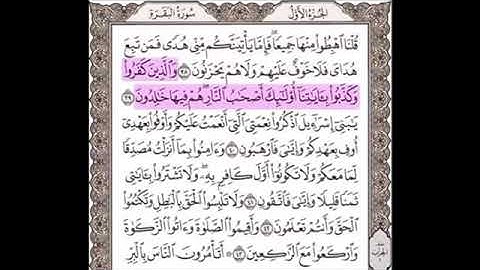 الجزء الأول
سورة البقرة
قُلْنَا ٱهْبِطُوا۟ مِنْهَا جَمِيعًا فَإِمَّا يَأْتِيَنَّكُم مِّنِّى هُدًى فَمَن تَبِعَ
هُدَاىَ فَلَا خَوْفٌ عَلَيْهِمْ وَلَا هُمْ يَحْزَنُونَ ٣٨ وَٱلَّذِينَ كَفَرُوا۟
وَكَذَّبُوا۟ بِـَٔايَـٰتِنَآ أُو۟لَـٰٓئِكَ أَصْحَـٰبُ ٱلنَّارِ هُمْ فِيهَا خَـٰلِدُونَ ٣٩
يَـٰبَنِىٓ إِسْرَٰٓءِيلَ ٱذْكُرُوا۟ نِعْمَتِىَ ٱلَّتِىٓ أَنْعَمْتُ عَلَيْكُمْ وَأَوْفُوا۟ بِعَهْدِىٓ
أُوفِ بِعَهْدِكُمْ وَإِيَّـٰىَ فَٱرْهَبُونِ ٤٠ وَءَامِنُوا۟ بِمَآ أَنزَلْتُ مُصَدِّقًا
لِّمَا مَعَكُمْ وَلَا تَكُونُوٓا۟ أَوَّلَ كَافِرٍۭ بِهِۦ وَلَا تَشْتَرُوا۟ بِـَٔايَـٰتِى
ثَمَنًا قَلِيلًا وَإِيَّـٰىَ فَٱتَّقُونِ ٤١ وَلَا تَلْبِسُوا۟ ٱلْحَقَّ بِٱلْبَـٰطِلِ وَتَكْتُمُوا۟
ٱلْحَقَّ وَأَنتُمْ تَعْلَمُونَ ٤٢ وَأَقِيمُوا۟ ٱلصَّلَوٰةَ وَءَاتُوا۟ ٱلزَّكَوٰةَ
وَٱرْكَعُوا۟ مَعَ ٱلرَّٰكِعِينَ ٤٣ أَتَأْمُرُونَ ٱلنَّاسَ بِٱلْبِرِّ